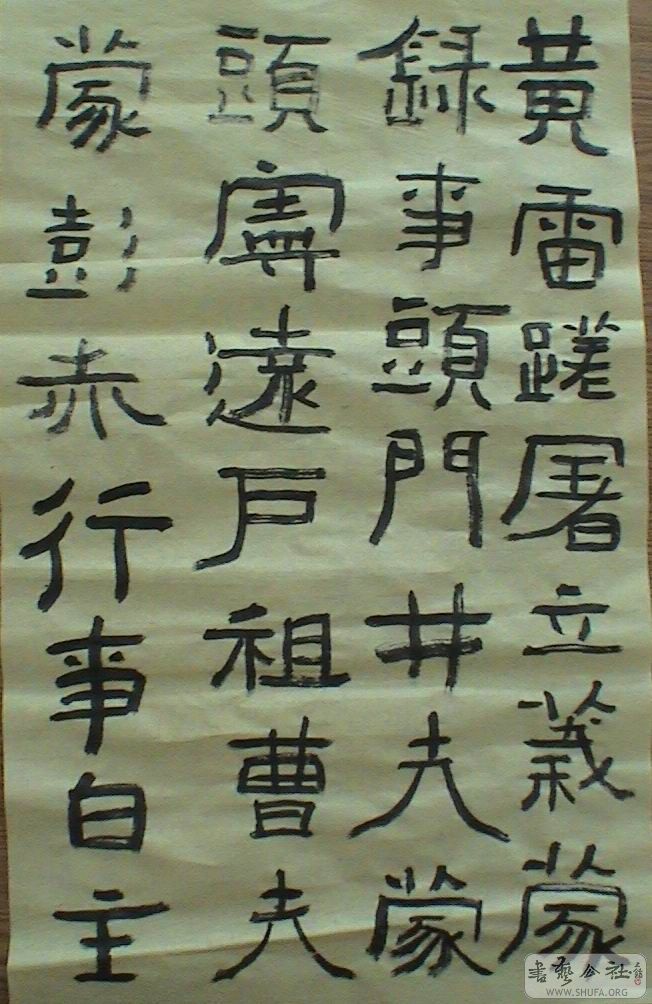 黄雷蹉屠立義蒙
録事頭門井夫蒙
頭寧遠戶祖曹夫
蒙彭赤行事自主
書藝公社
WWW.SHUFA.ORG